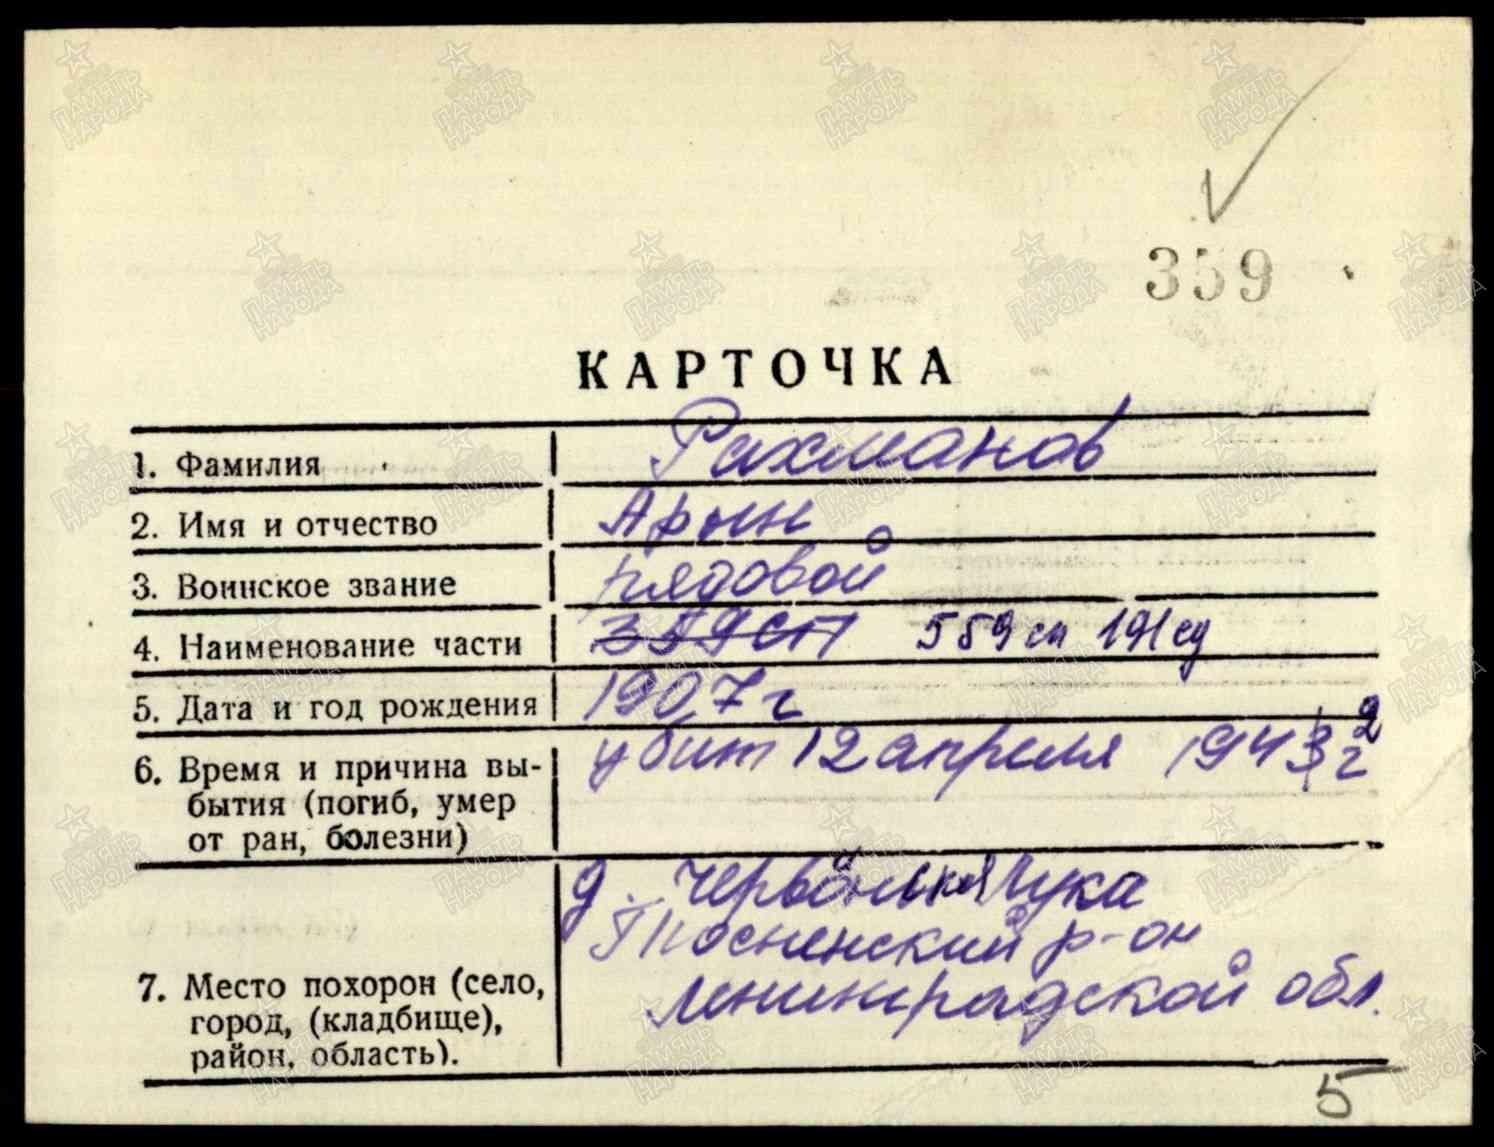 359
КАРТОЧКА
1. Фамилия Рахманов
2. Имя и отчество Арын
3. Воинское звание рядовой
4. Наименование части 359 сп 559 сп 191 сд
5. Дата и год рождения 1907 г
6. Время и причина выбытия (погиб, умер от ран, болезни) убит 12 апреля 1943 г 2
д. Червонская Лука
Тосненский р-он
Ленинградской обл.
7. Место похорон (село,
город, (кладбище),
район, область).
5
ПАМЯТЬ НАРОДА